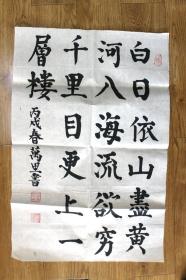 白日依山盡黄
河八海流欲穷
千里目更上一
層樓
丙戌春萬里書